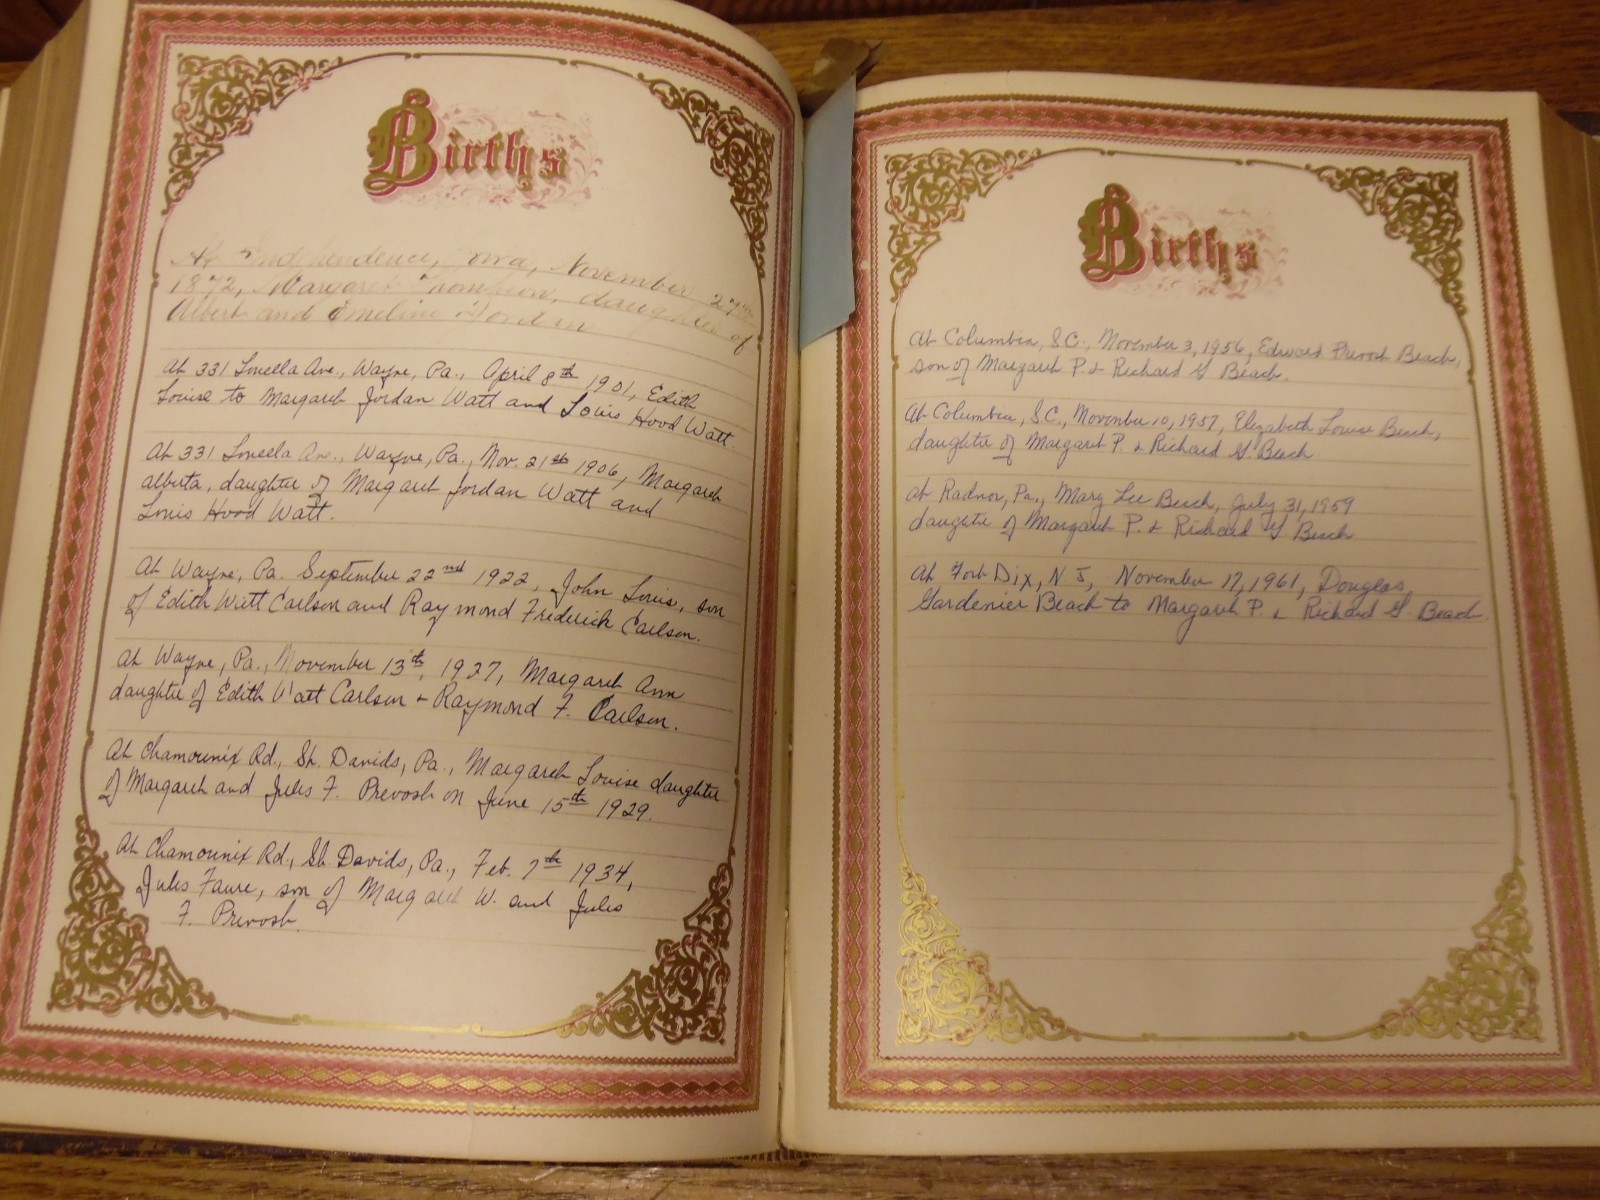 Births
At Independence, Iowa, November 27th
1872, Margaret Thompson, daughter of
Albert and Emeline Jordan
At 331 Louella Ave., Wayne, Pa., April 8th 1901, Edith
Louise to Margaret Jordan Watt and Louis Hood Watt.
At 331 Louella Ave., Wayne, Pa., Nov. 21st 1906, Margaret
Alberta, daughter of Margaret Jordan Watt and
Louis Hood Watt.
At Wayne, Pa. September 22nd 1922, John Louis, son
of Edith Watt Carlson and Raymond Frederick Carlson.
At Wayne, Pa., November 13th, 1927, Margaret Ann
daughter of Edith Watt Carlson + Raymond F. Carlson.
At Chamounix Rd., St. Davids, Pa., Margaret Louise daughter
of Margaret and Jules F. Prevost on June 15th 1929.
At Chamounix Rd., St. Davids, Pa., Feb. 7th 1934,
Jules Faure, son of Margaret W. and Jules
F. Prevost.
Births
At Columbia, S.C., November 3, 1956, Edward Prevost Beach,
son of Margaret P. + Richard G Beach.
At Columbia, S.C., November 10, 1957, Elizabeth Louise Beach,
daughter of Margaret P. + Richard G. Beach
At Radnor, Pa., Mary Lee Beach, July 31, 1959
daughter of Margaret P. + Richard G Beach
At Fort Dix, N.J, November 17, 1961, Douglas
Gardenier Beach to Margaret P. + Richard G. Beach